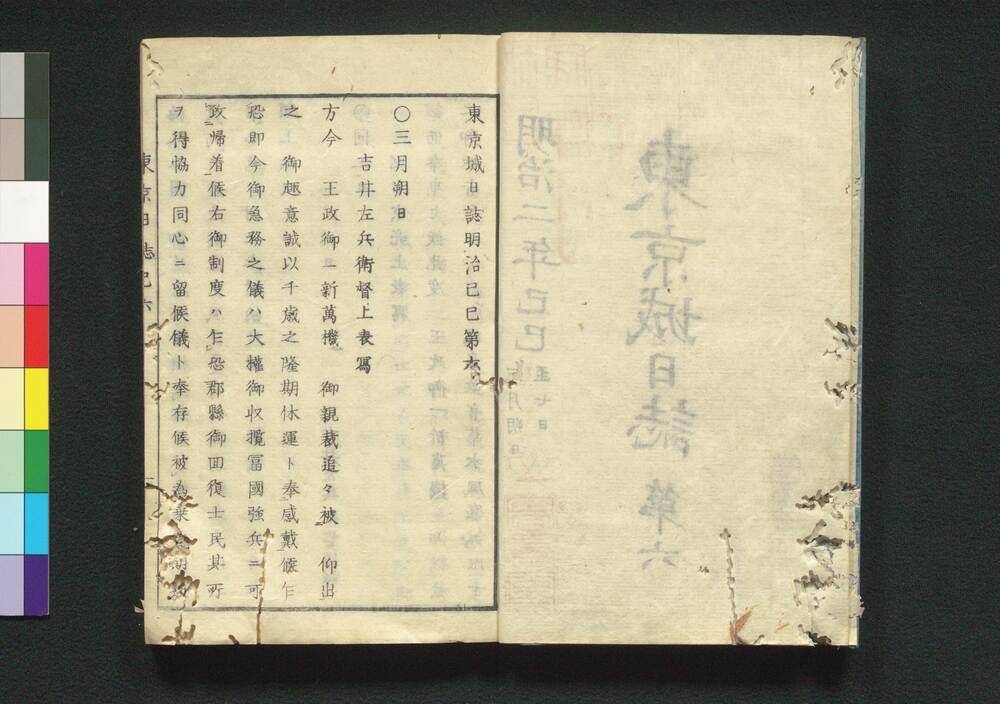 東京城日誌明治己巳第六
〇三月朔日
吉井左兵衛督上表寫
方今　王政御一新萬機　御親裁追々被　仰出
之　御趣意誠以千歳之隆期休運ト奉感戴候乍
恐即今御急務之儀ハ大權御収攬冨國強兵ニ可
致帰着候右御制度ハ乍恐郡縣御囬復士民其所
ヲ得恊力同心ニ留候儀ト奉存候被為
東京日誌己六
東京城日誌 第六
明治二年己巳